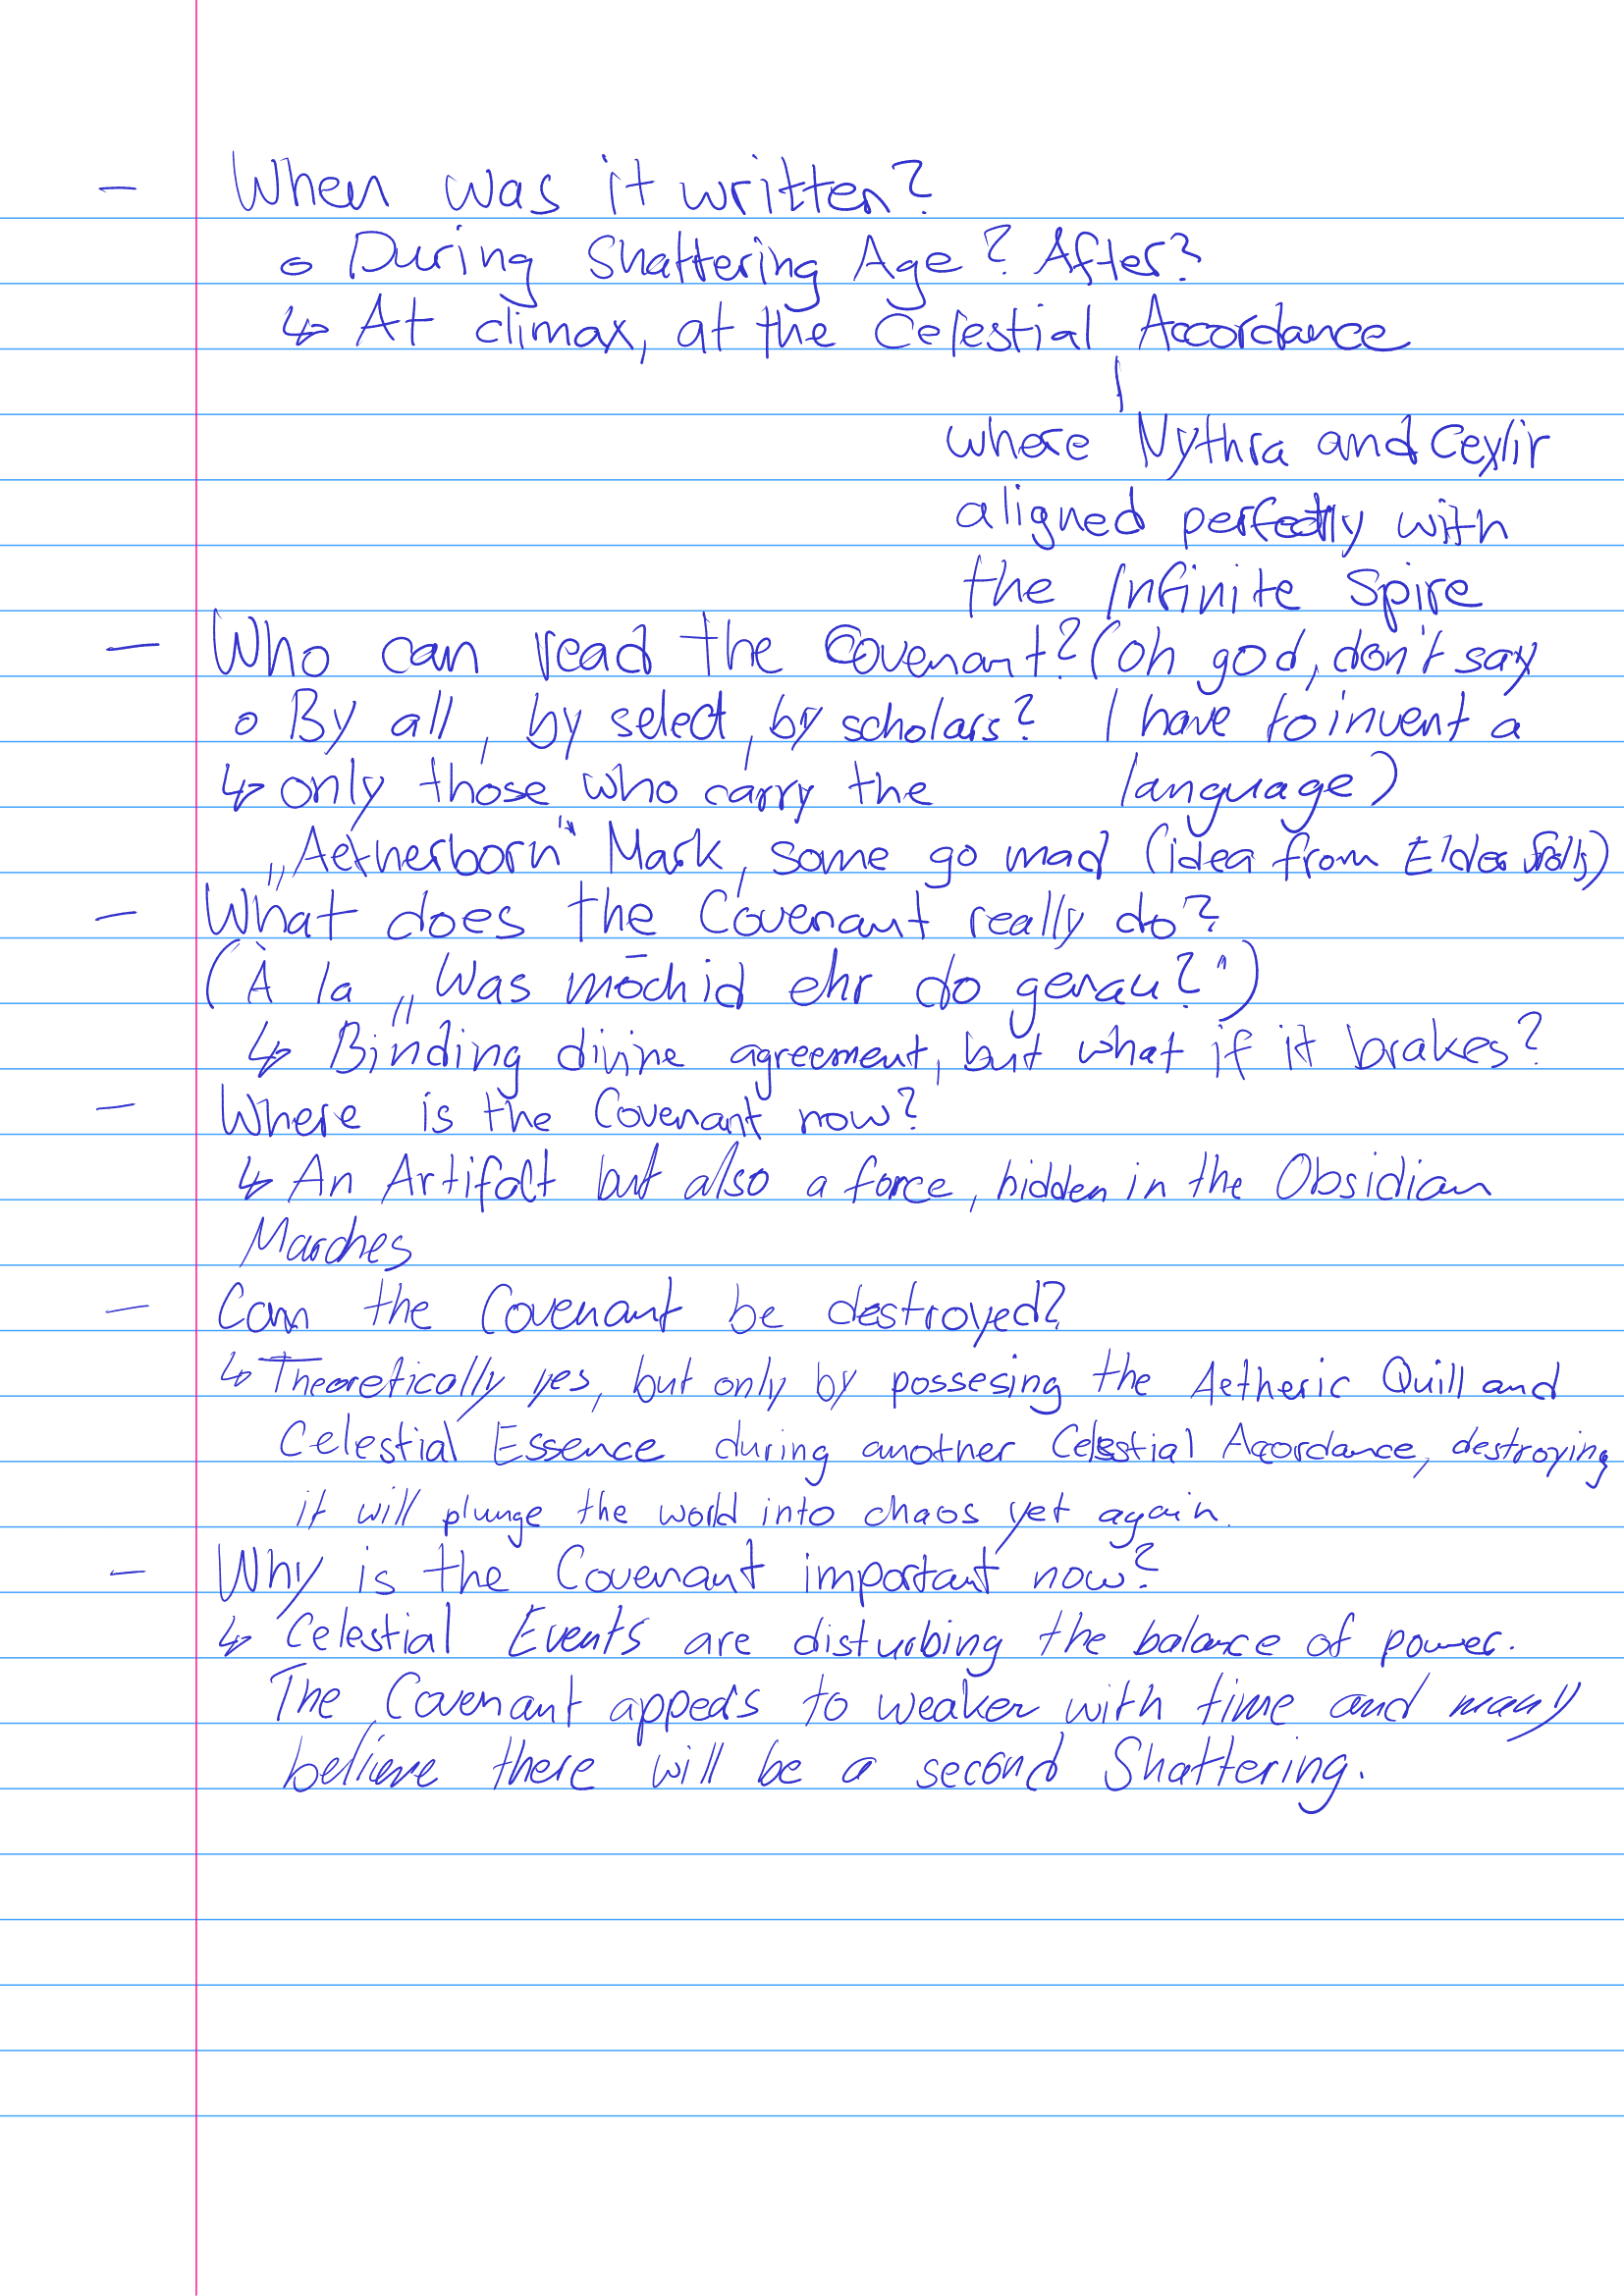 - When was it written?
o During Shattering Age? After?
↳ At climax, at the Celestial Accordance
where Nythra and Ceylir
aligned perfectly with
the Infinite Spire
- Who can read the Covenant? (oh god, don't say
o By all, by select, by scholars? I have to invent a
↳ only those who carry the language)
„Aetherborn“ Mark, some go mad (idea from Elder Srolls)
- What does the Covenant really do?
(À la „Was mōchid ehr do genau?“)
↳ Binding divine agreement, but what if it brakes?
- Where is the Covenant now?
↳ An Artifact but also a force, hidden in the Obsidian
Marches
- Can the Covenant be destroyed?
↳ Theoretically yes, but only by possesing the Aetheric Quill and
Celestial Essence during another Celestial Accordance, destroying
it will plunge the world into chaos yet again.
- Why is the Covenant important now?
↳ Celestial Events are disturbing the balance of power.
The Covenant appeds to weaker with time and many
believe there will be a second Shattering.